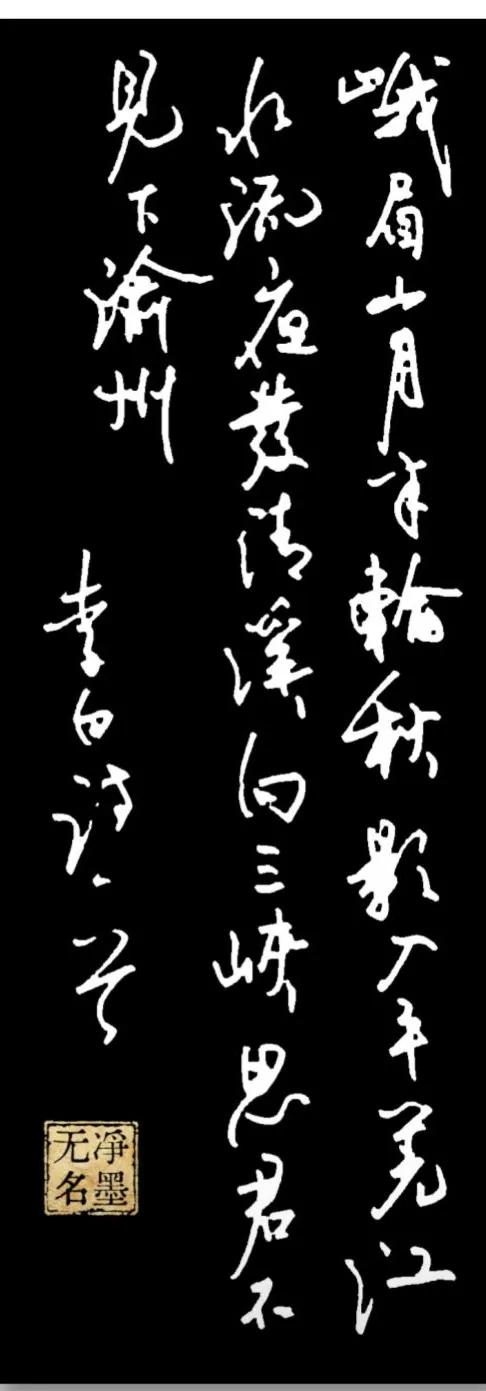 峨眉山月半輪秋影入平羌江
水流夜發清溪向三峽思君不
見下渝州
李白詩一首
净墨
无名